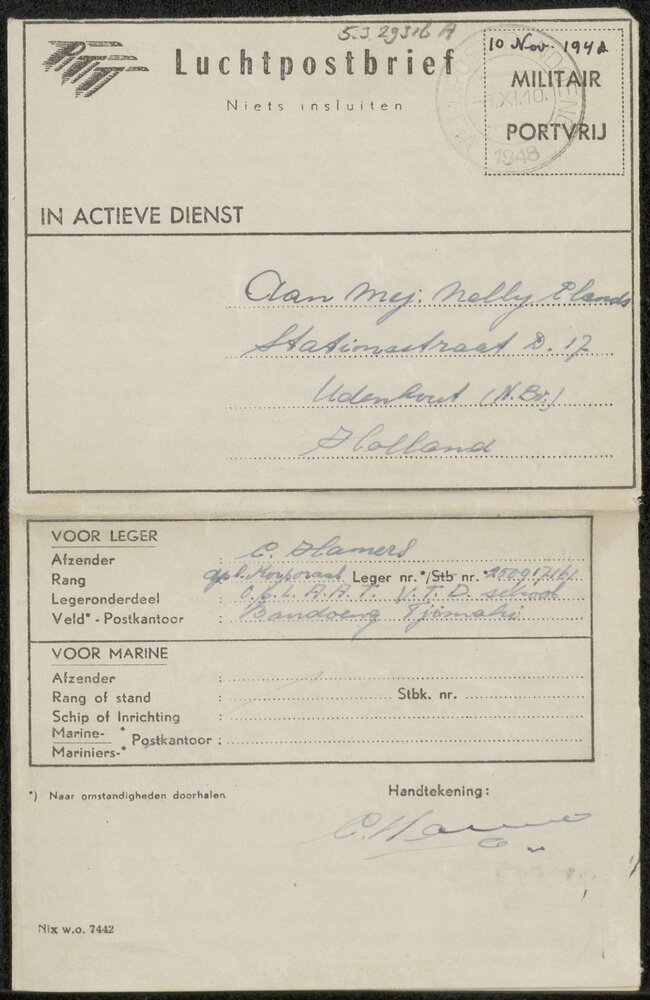 5.3 29316 A
PTT
Luchtpostbrief
Niets insluiten
10 Nov. 1948
MILITAIR
PORTVRIJ
XI.10
1948
IN ACTIEVE DIENST
Aan Mej. Nelly
Stationsstraat D. 17
Udenhout (N.Br.)
Holland
VOOR LEGER
Afzender C. Hamers
Rang dpl. Korporaal Leger nr.*/Stb nr.
Legeronderdeel : O.C.L.A.A.T. V.T.D. school
Veld* - Postkantoor : Bandoeng Tjimahi
VOOR MARINE
Afzender :
Rang of stand : Stbk. nr.
Schip of Inrichting :
Marine- * Postkantoor :
Mariniers-*
*) Naar omstandigheden doorhalen
Handtekening:
C. Hamers
Nix w.o. 7442